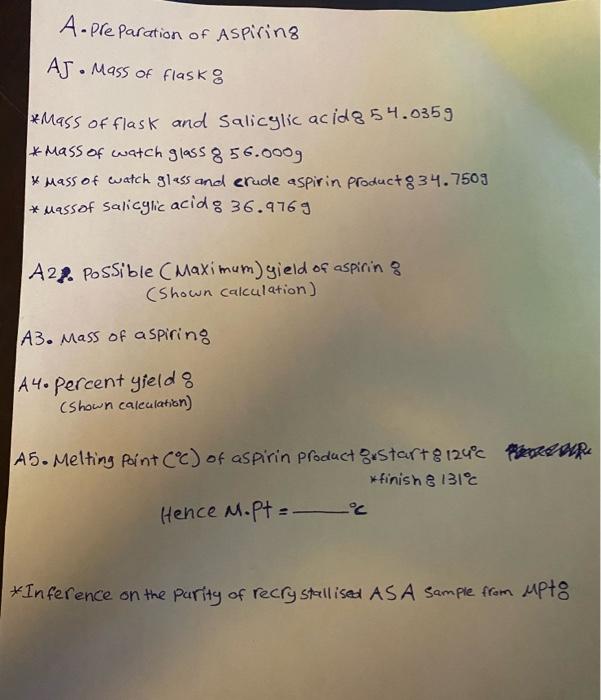 A. Preparation of Aspirin:
A1. Mass of flask:
*Mass of flask and Salicylic acid: 54.035g
*Mass of watch glass: 56.000g
*Mass of watch glass and crude aspirin product: 34.750g
*Mass of salicylic acid: 36.976g
A2. Possible (Maximum) yield of aspirin:
(Shown calculation)
A3. Mass of aspirin:
A4. Percent yield:
(Shown calculation)
A5. Melting Point (°C) of aspirin product: *Start: 124°C
*finish: 131°C
Hence M.Pt = ____°C
*Inference on the purity of recrystallised ASA Sample from MPt: